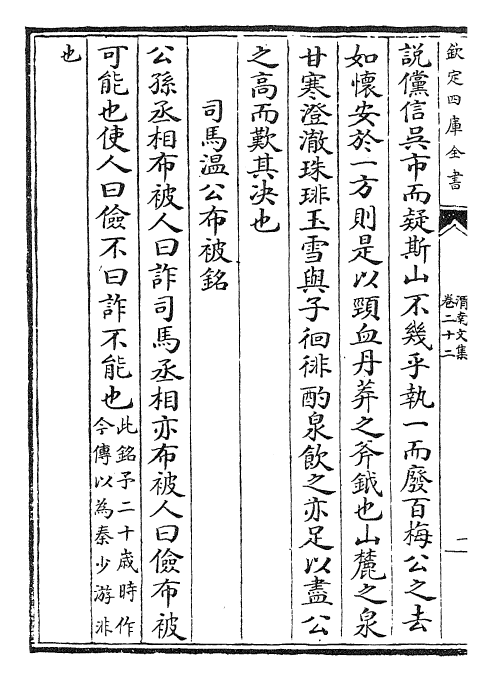 欽定四庫全書
渭南文集
卷二十二
一
說儻信吳市而疑斯山不幾乎執一而廢百梅公之去
如懷安於一方則是以頸血丹莽之斧鉞也山麓之泉
甘寒澄澈珠琲玉雪與子徊徘酌泉飲之亦足以盡公
之高而歎其決也
司馬溫公布被銘
公孫丞相布被人曰詐司馬丞相亦布被人曰儉布被
可能也使人曰儉不曰詐不能也此銘予二十歲時作
今傳以為秦少游非
也